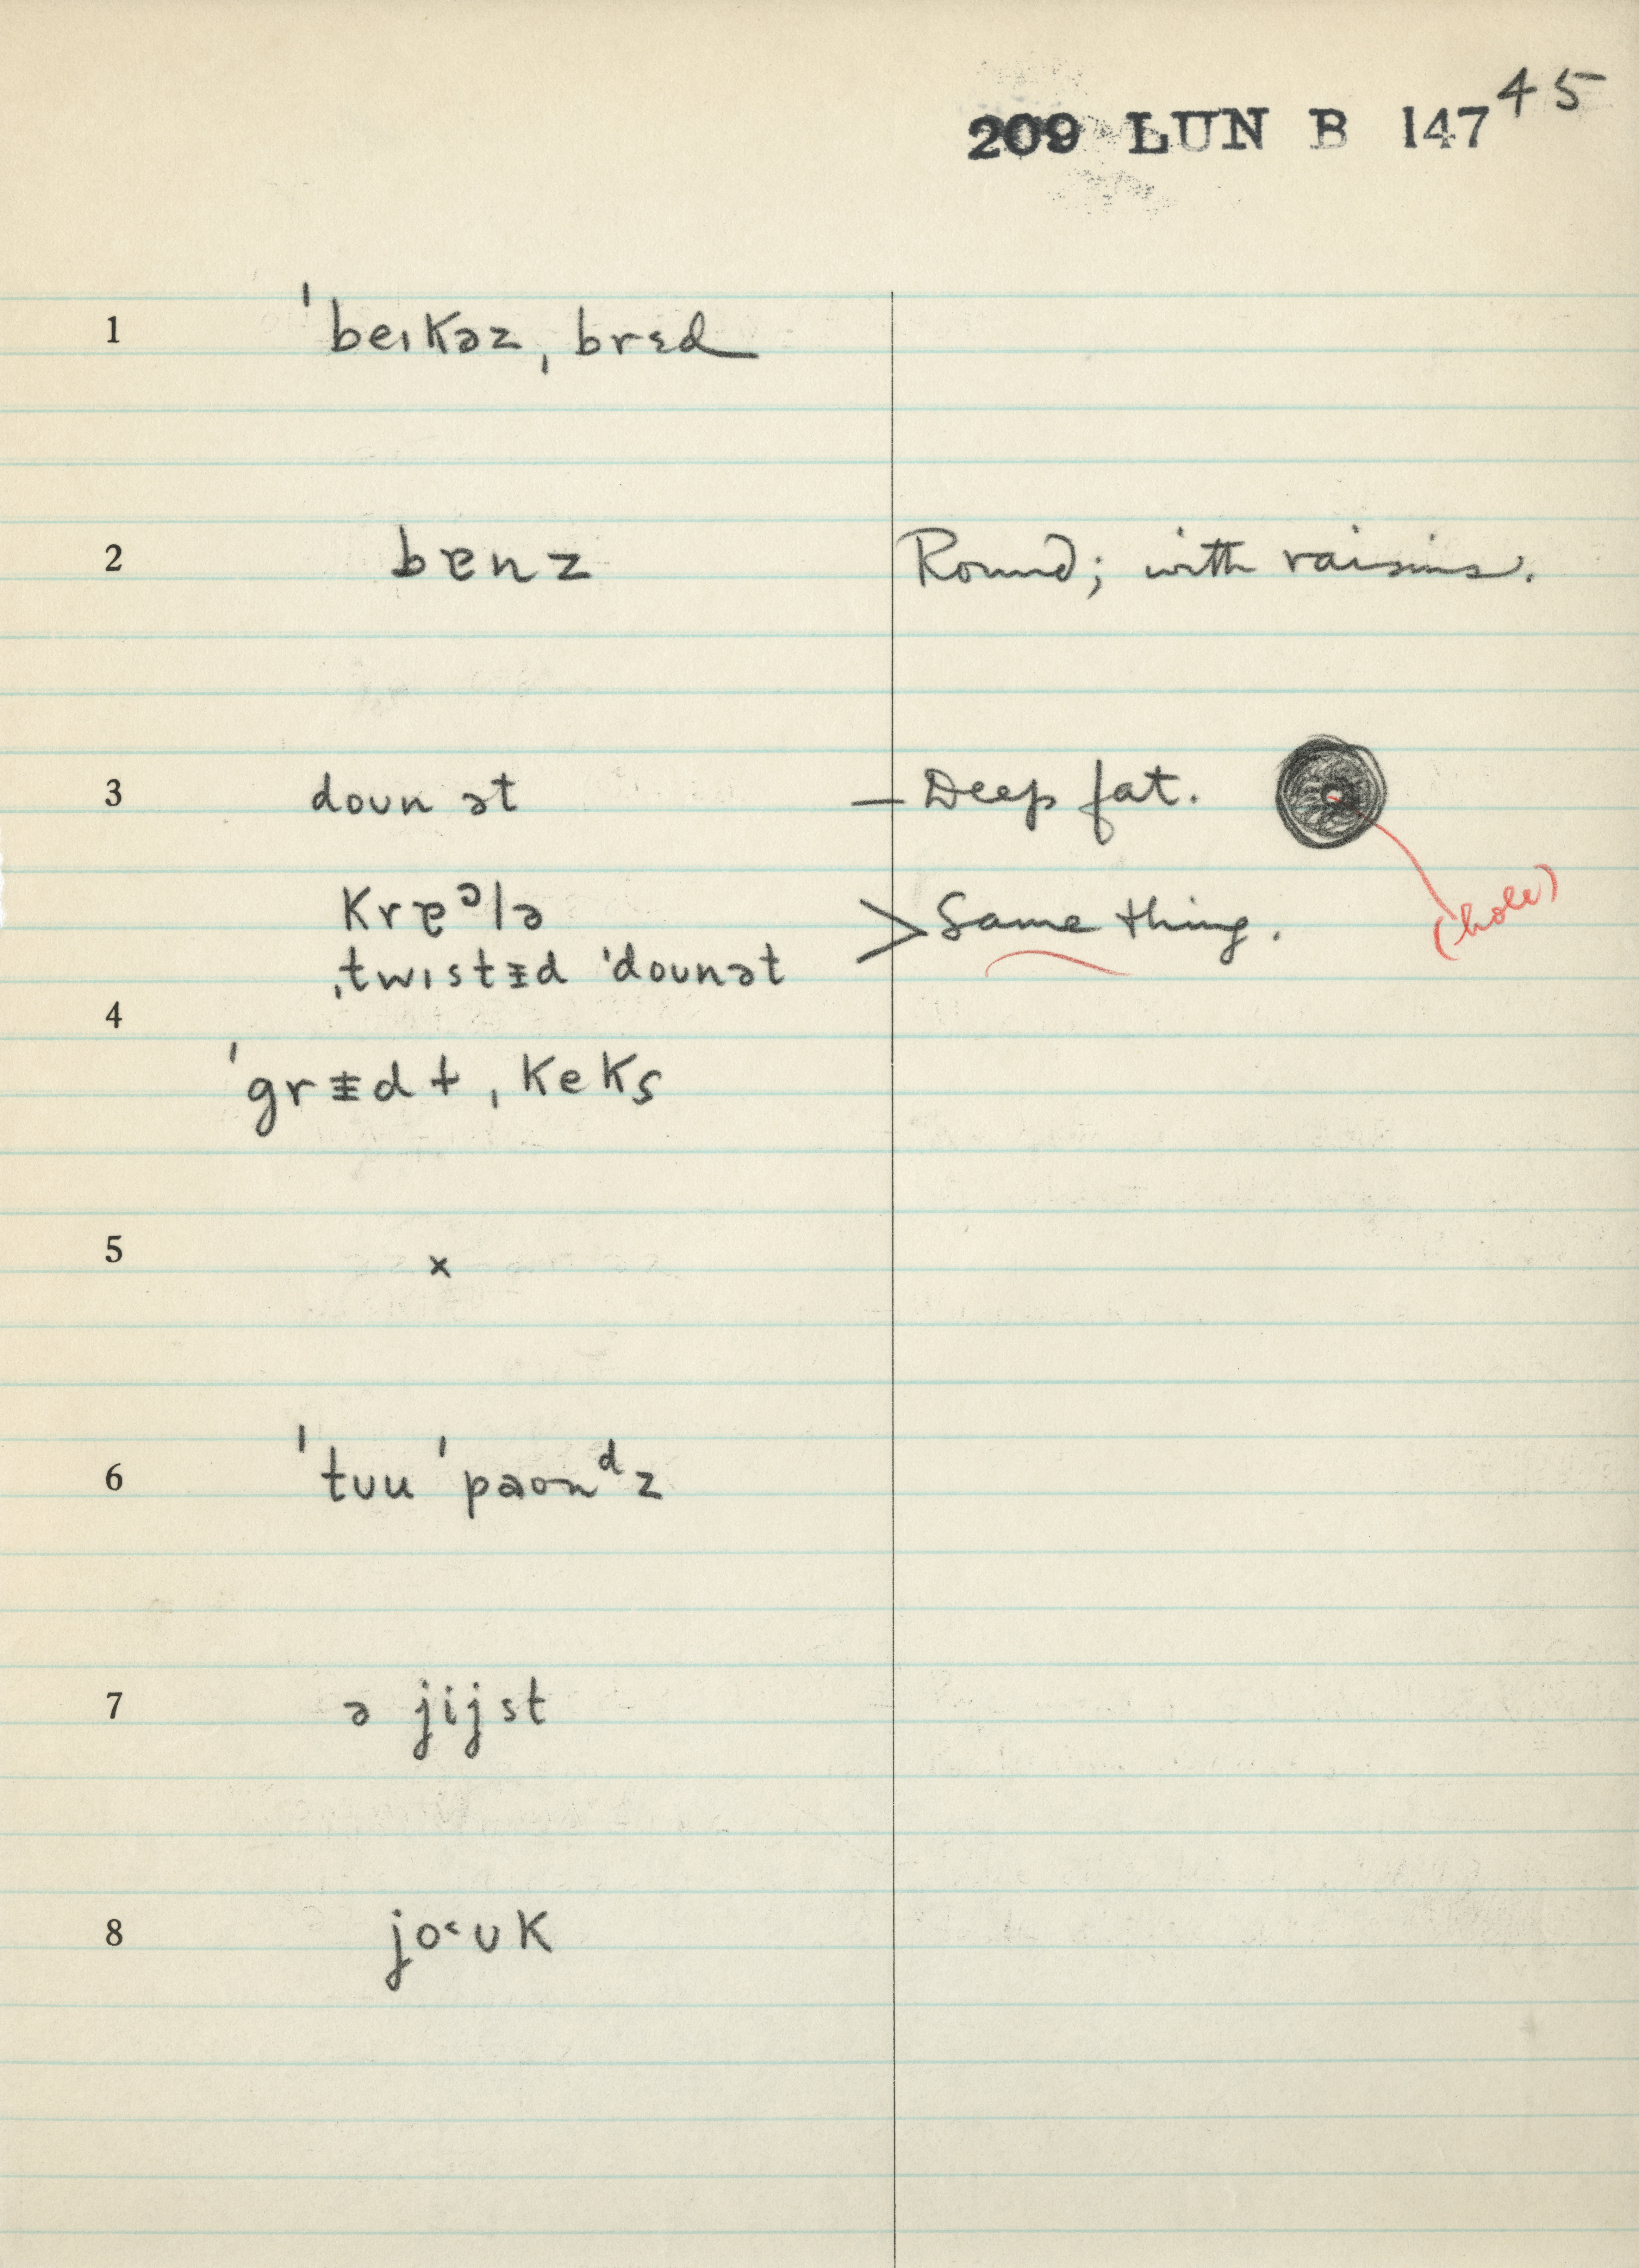 45
209 LUN B 147
1 ˈbeɪkəz ˌbrɛd
2 bɐnz Round; with raisins.
3 doʊn ət — Deep fat.
(hole)
krɐᵊlə > Same thing.
ˌtwɪstɪd ˈdoʊnət
4
ˈgrɪdɫ ˌkeks
5 x
6 ˈtʊu ˈpaʊnᵈz
7 ə jijst
8 jo˂ʊk